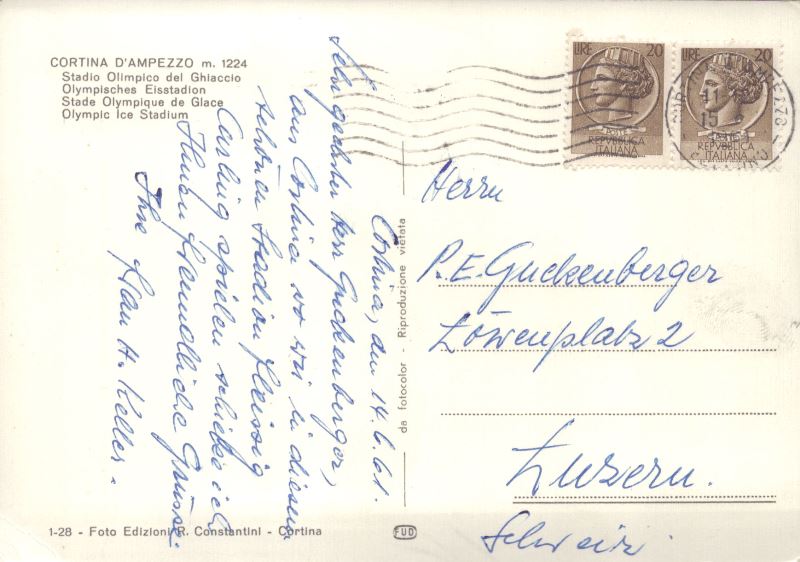 CORTINA D'AMPEZZO m. 1224
Stadio Olimpico del Ghiaccio
Olympisches Eisstadion
Stade Olympique de Glace
Olympic Ice Stadium
Cortina, den 14.6.61.
Sehr geehrter Herr Guckenberger,
aus Cortina wo wir in diesem
schönen Stadion fleissig
Curling spielen schicke ich
Ihnen freundliche Grüsse.
Ihre Frau H. Keller.
1-28 - Foto Edizioni R. Constantini - Cortina
FUD
da fotocolor - Riproduzione vietata
LIRE 20
REPVBBLICA
ITALIANA
LIRE 20
REPVBBLICA
ITALIANA
Herrn
P.E. Guckenberger
Löwenplatz 2
Luzern.
Schweiz